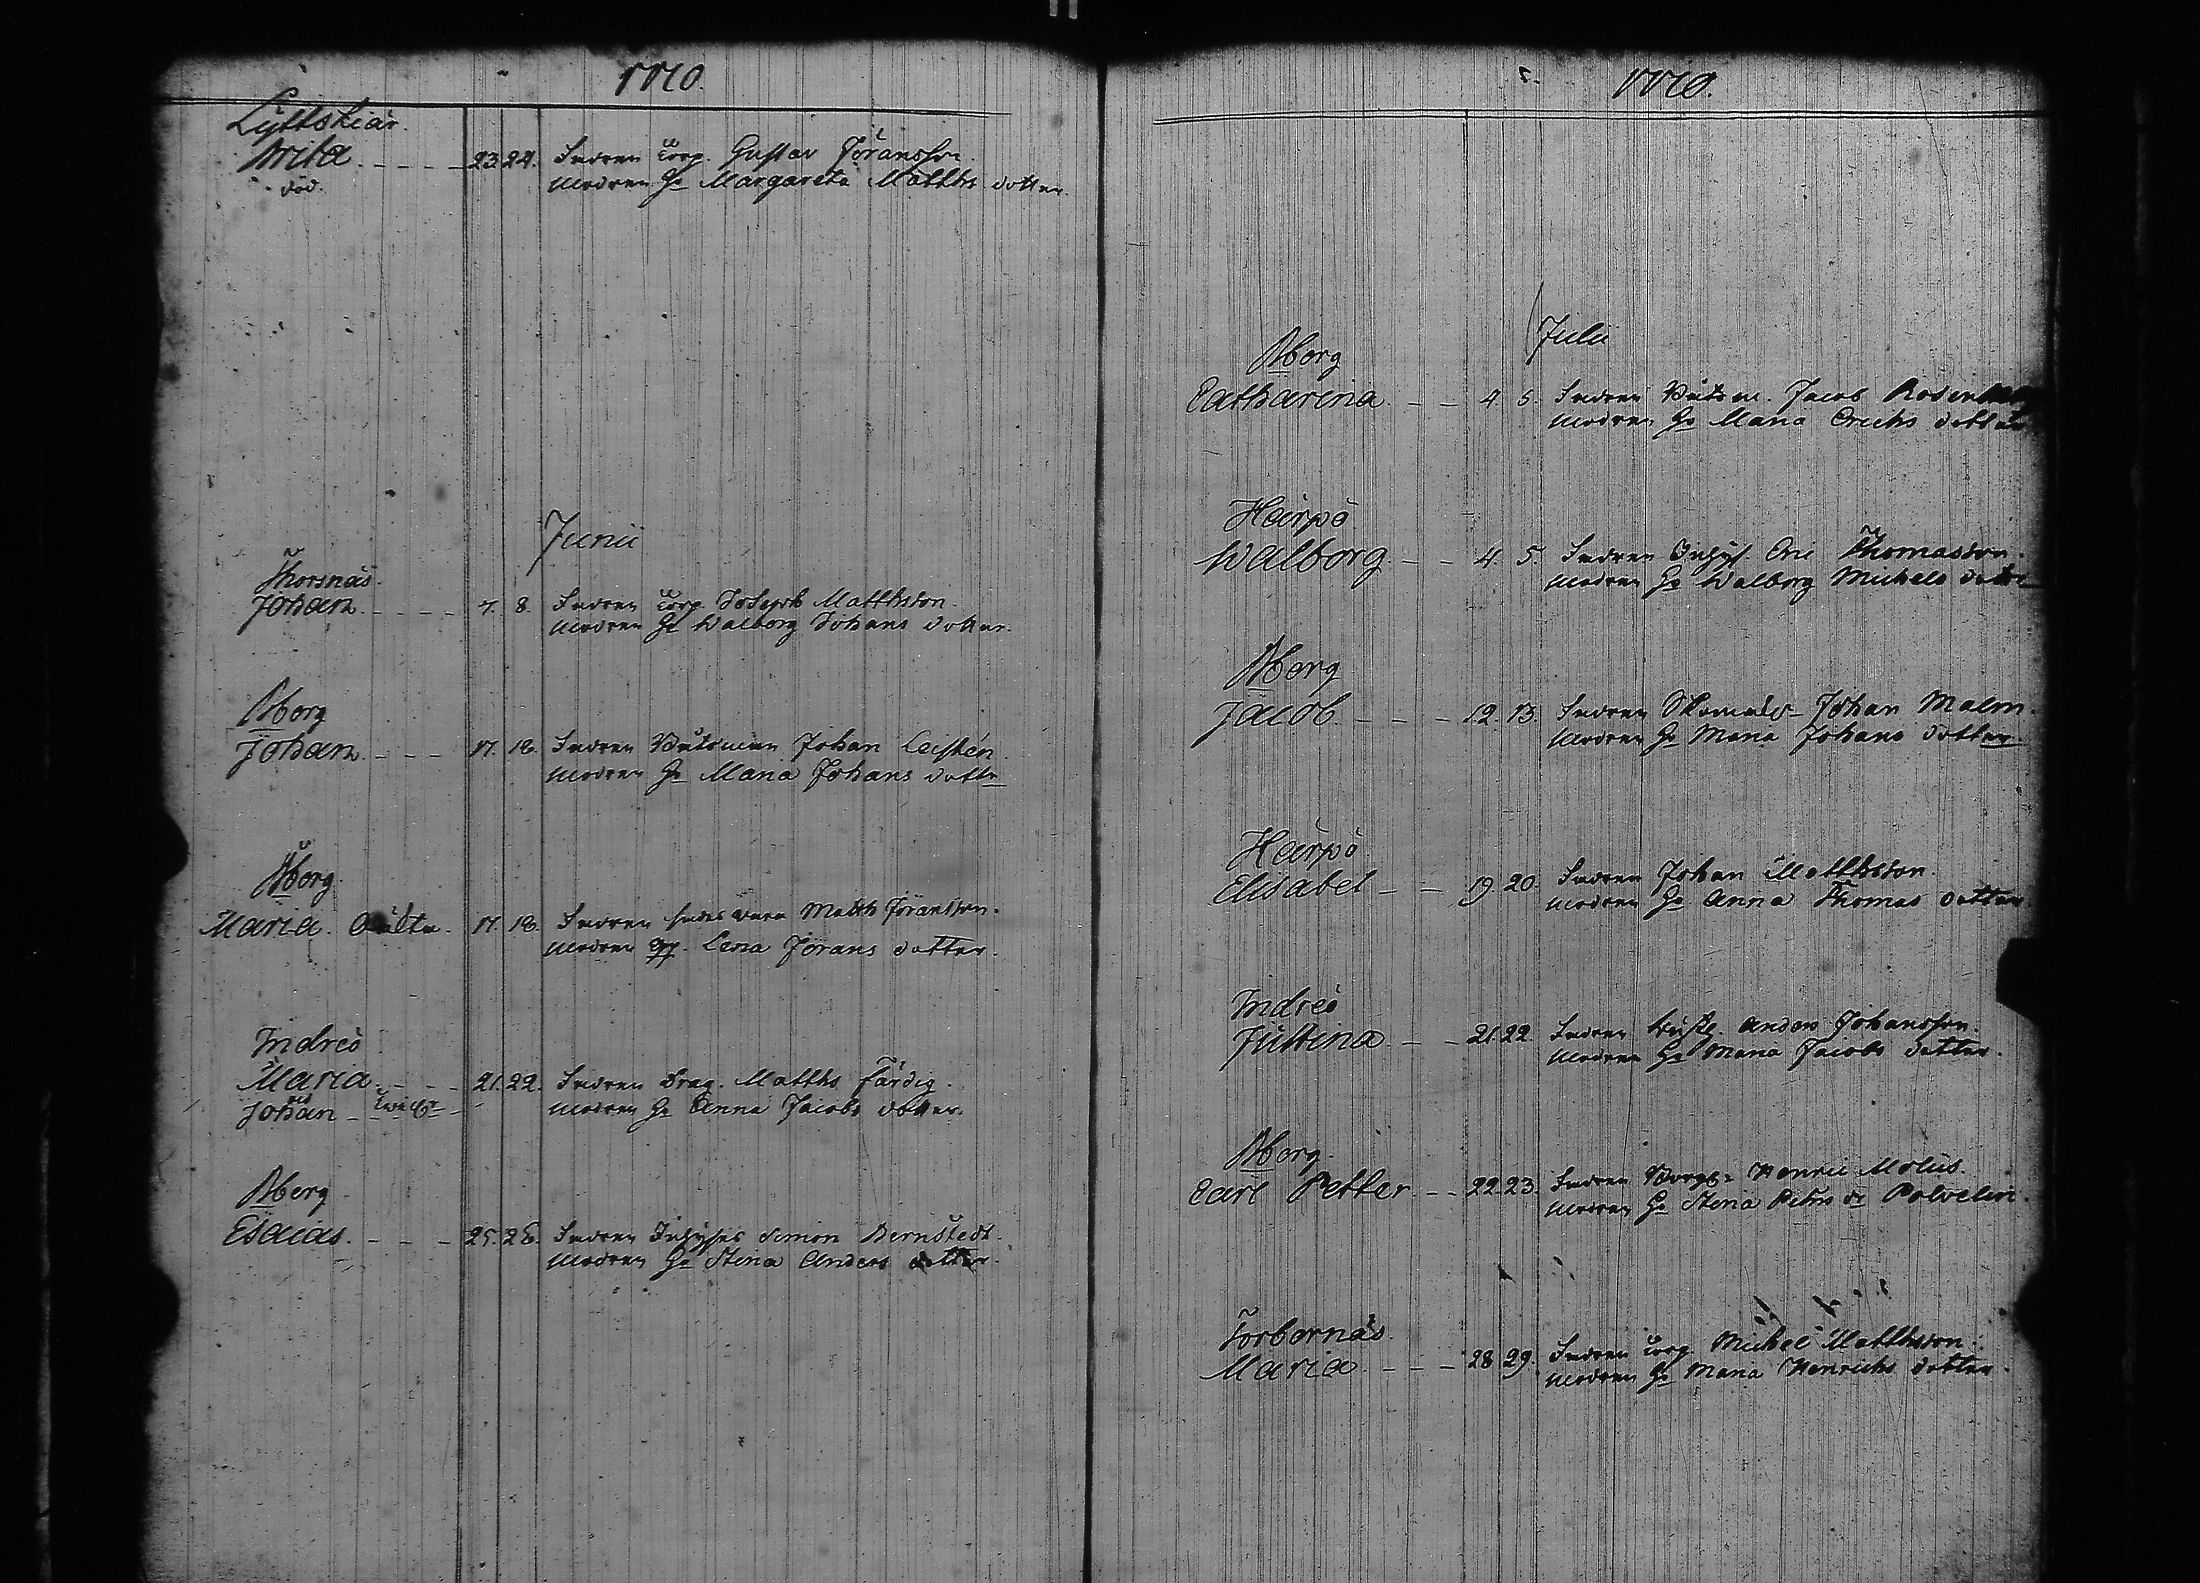 1770.
Lyttskiär.
Brita 23. 24. Fadren Torp. Gustav Jöransson.
död. Modren H: Margareta Matths dotter.
Junii
Thorsnäs.
Johan 7. 8. Fadren Torp. Joseph Matthsson.
Modren H: Walborg Johans dotter.
Bborg
Johan 17. 18. Fadren Båtsman Johan Leistén
Modren H: Maria Johans dotter
Bborg.
Maria. Oäkta. 17. 18. Fadren Matth Jöransson.
Modren Lena Jörans dotter.
Indreö
Maria 21. 22. Fadren Drag. Matths Färdig.
Johan Modren H: Anna Jacobs dotter.
Bborg
Esaias. 25. 26. Fadren Inhyses Simon Bernstedt.
Modren H: Stina Anders dotter.
1770.
Julii
Bborg
Catharina 4 5. Fadren Båtsm. Jacob
Modren H: Maria Erichs dotter
Härpö
Walborg 4. 5. Fadren Inhys. Eric Thomasson.
Modren H: Walborg Michels dotter
Bborg
Jacob 12. 13. Fadren Skomak. Johan Malm.
Modren H: Maria Johans dotter
Härpö
Elisabet 19 20. Fadren Johan Matthsson.
Modren H: Anna Thomas dotter
Indreö
Justina 21. 22. Fadren Anders Johansson.
Modren H: Maria Jacobs dotter.
Bborg.
Carl Petter 22. 23. Fadren Borg. Henric Molus.
Modren H: Stina Petters dr Polvelin.
Torbornäs.
Maria 28 29. Fadren Torp. Michel Matthsson.
Modren H: Maria Henrichs dotter